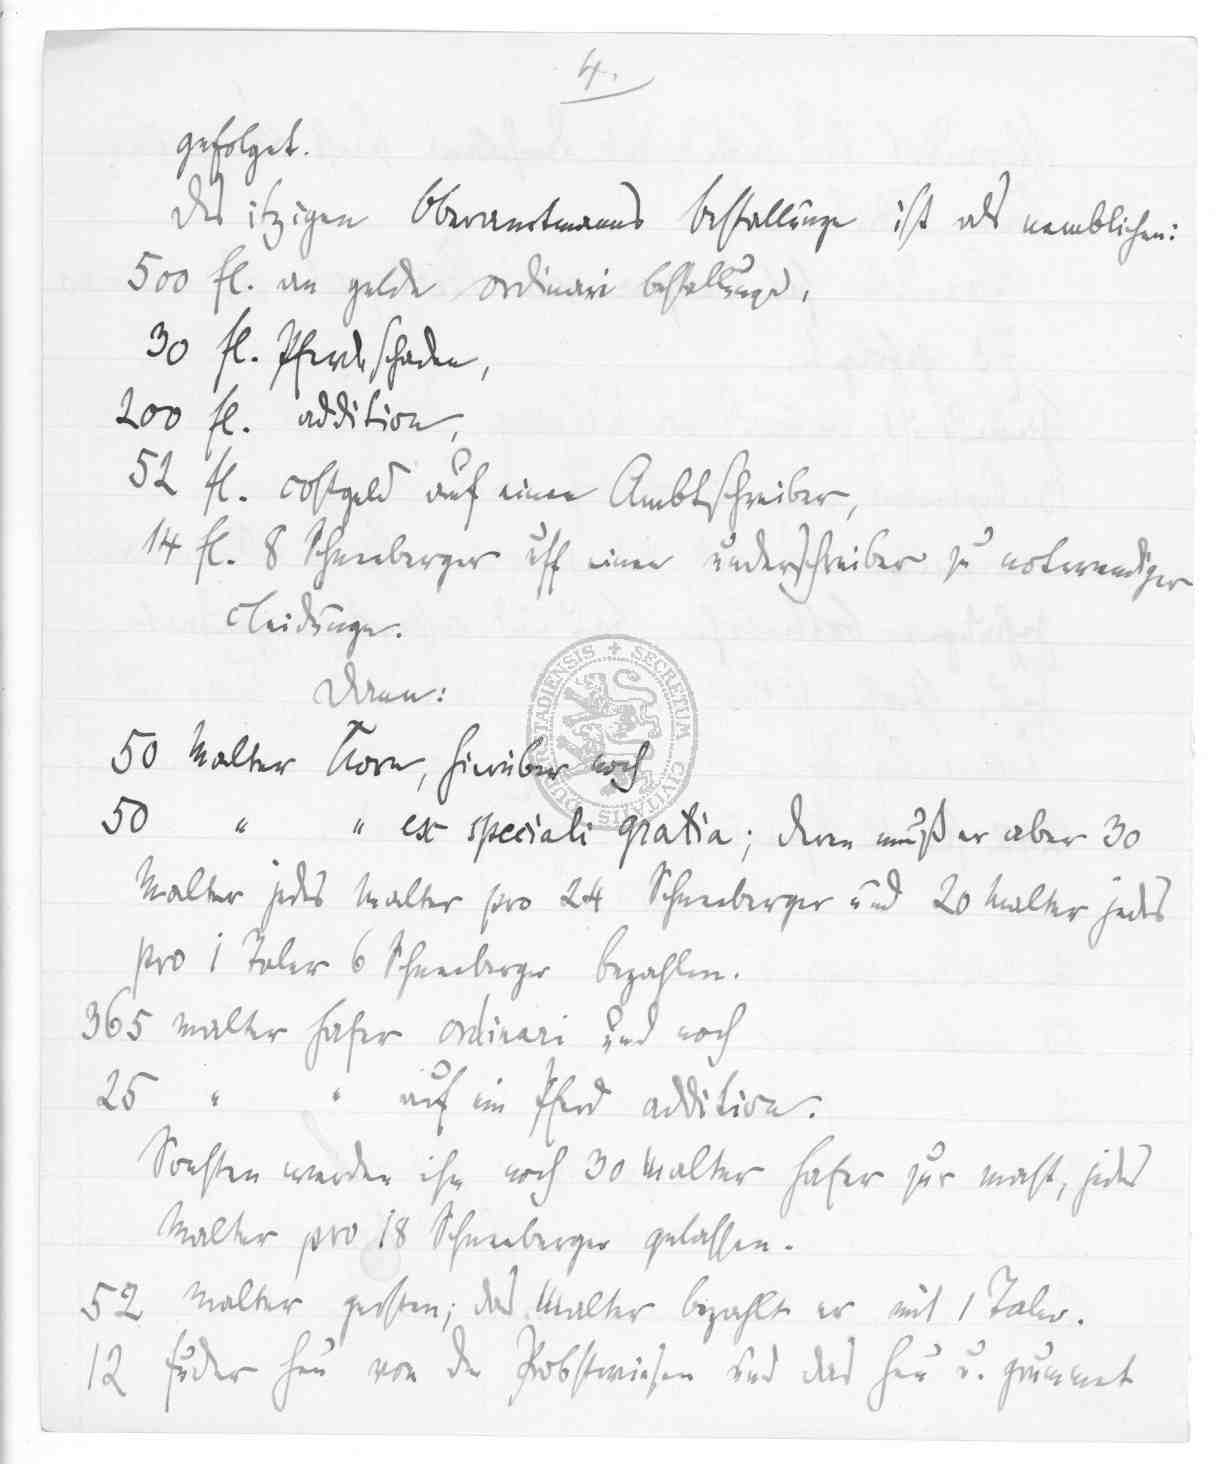 4.
gefolget.
Des itzigen Oberamtmanns bestallunge ist als nemblichen:
500 fl. an gelde ordinari bestallunge,
30 fl. Pferdeschaden,
200 fl. addition,
52 fl. costgeld auf einen Ambtschreiber,
14 fl. 8 Schneeberger uff einen underschreiber zu notwendiger
cleidunge.
Dann:
50 Malter Korn, hierüber noch
50 " " ex speciali gratia; deren muß er aber 30
Malter jedes Malter pro 24 Schneeberger und 20 Malter jedes
pro 1 Taler 6 Schneeberger bezahlen.
365 malter hafer ordinari und noch
25 " " auf ein Pferd addition.
Sonsten werden ihm noch 30 Malter hafer zur mast, jedes
Malter pro 18 Schneeberger gelassen.
52 Malter gersten; das Malter bezahlt er mit 1 Taler.
12 fuder heu von den Probstwiesen und das heu u. grummet
SECRETUM CIVITATIS DURMSTADIENSIS